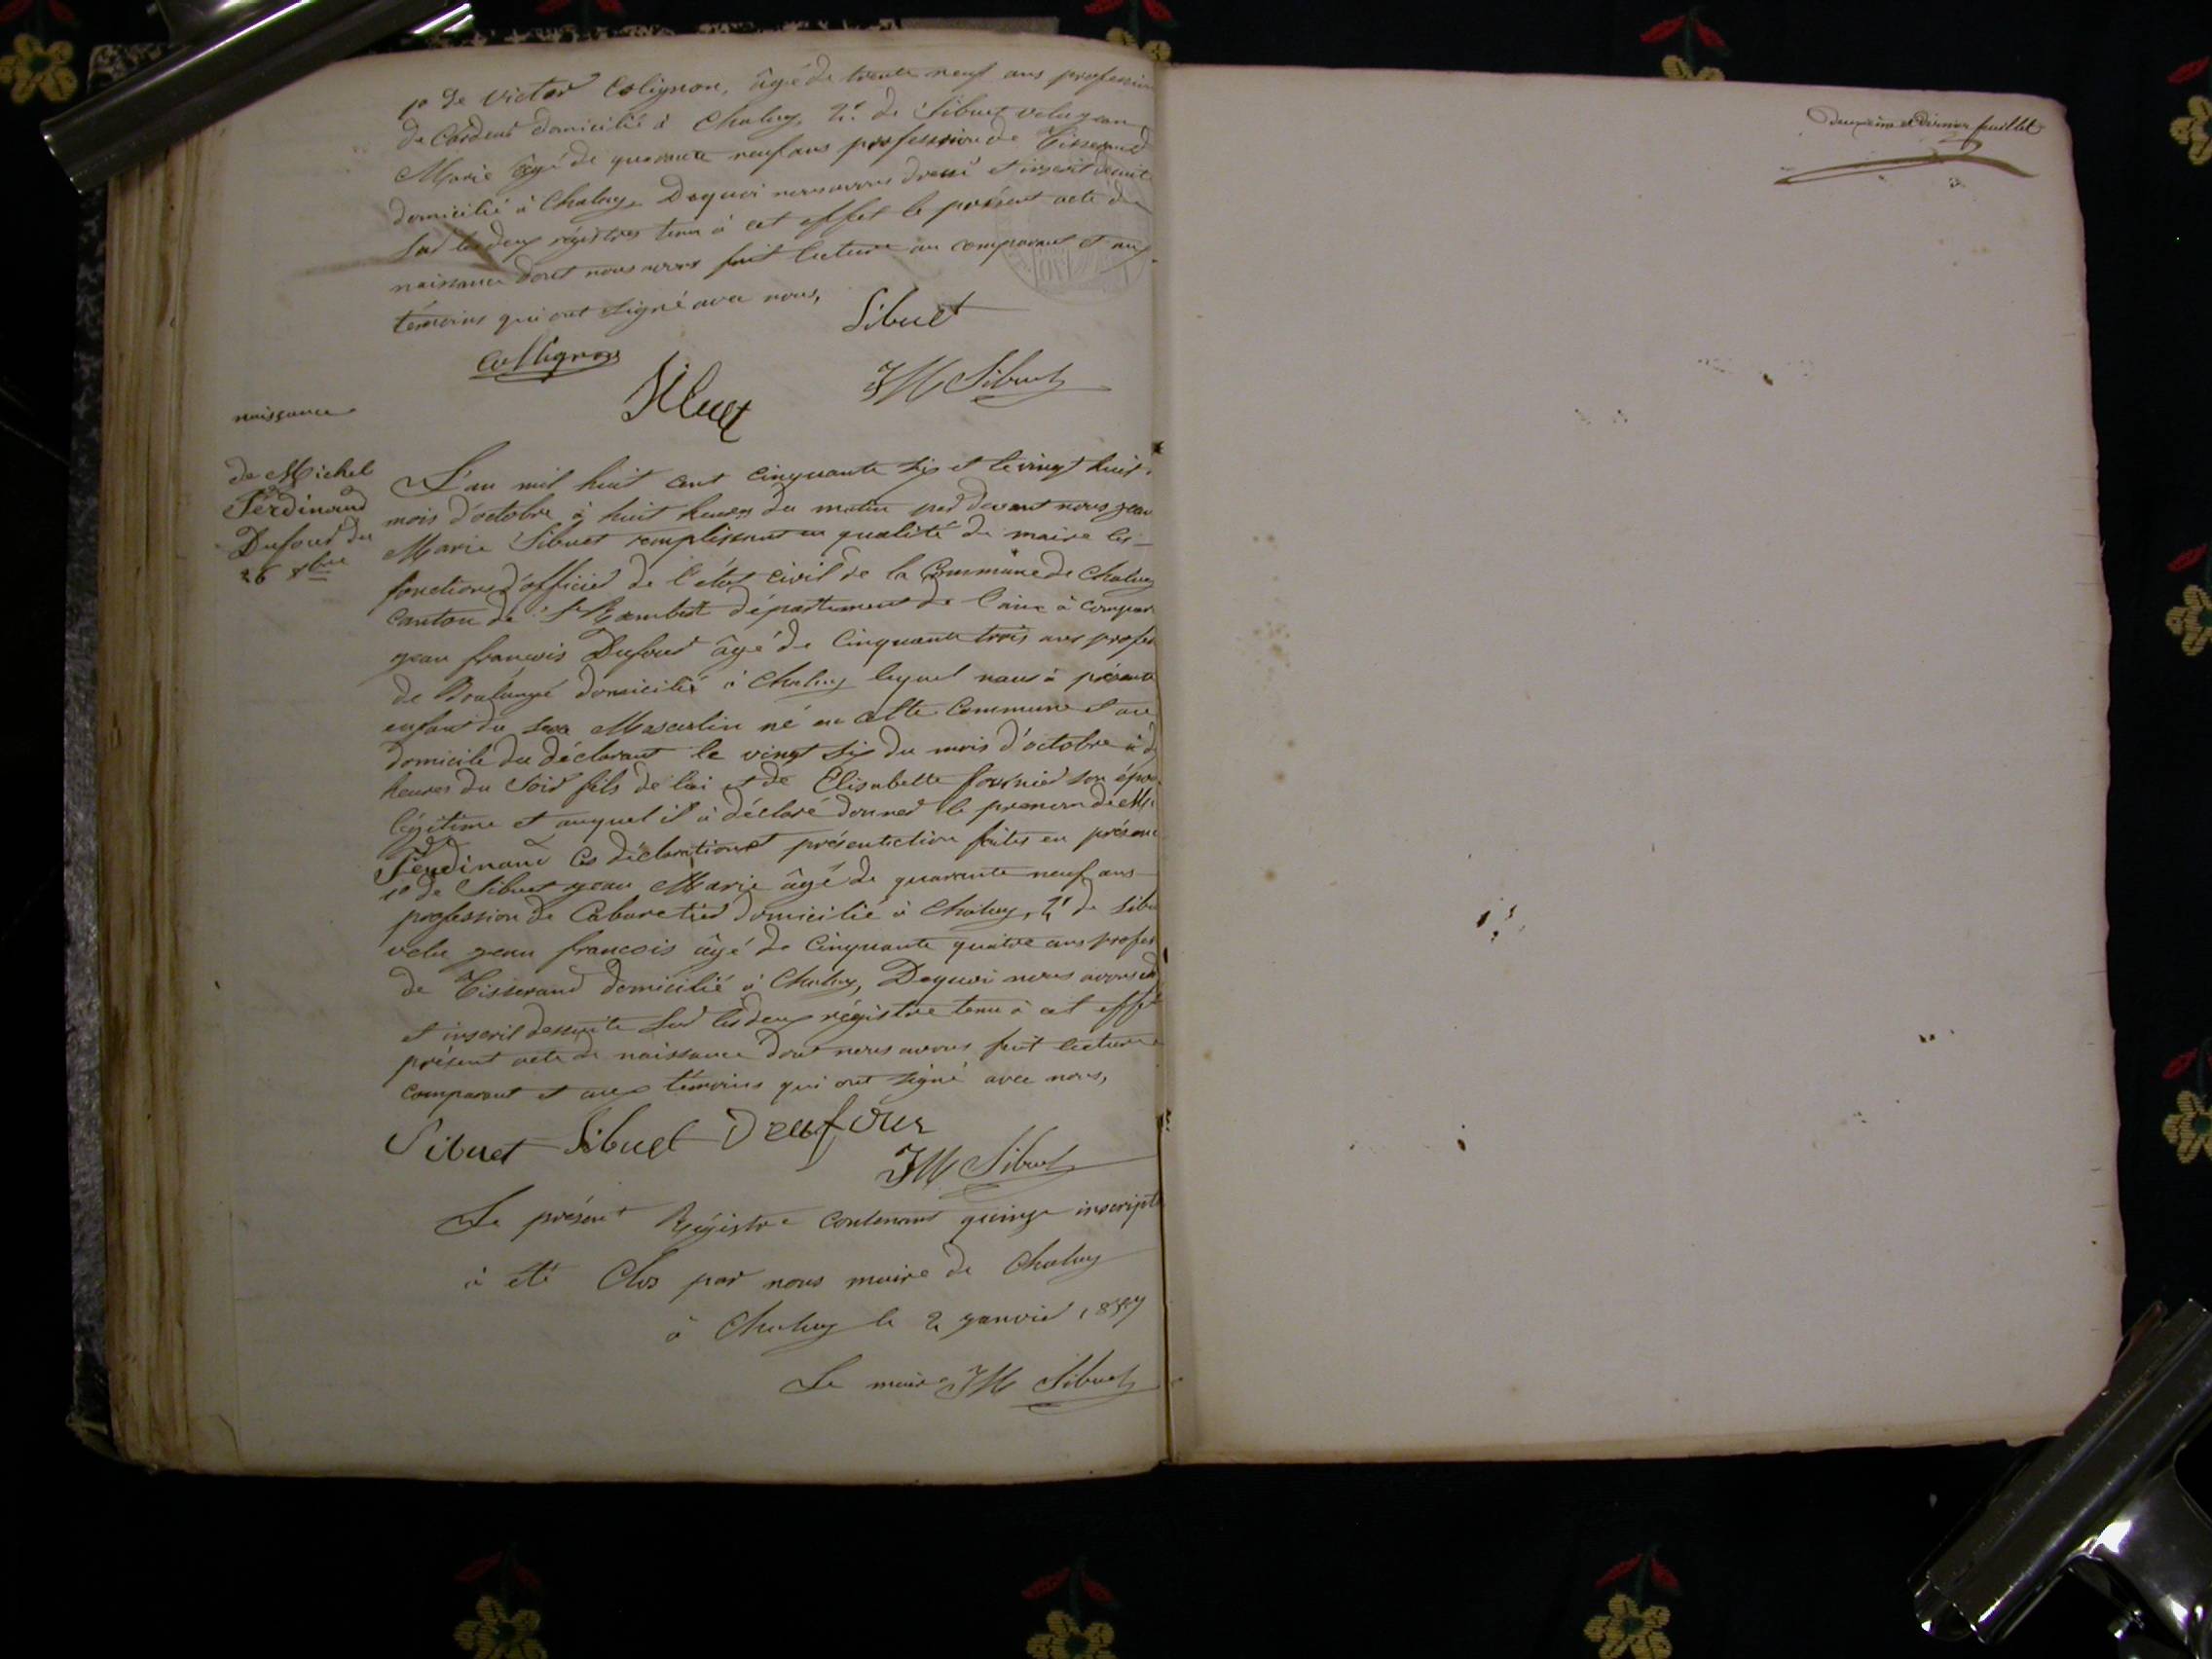 1º de Victor Colignon, âgé de trente neuf ans profession
de Cardeur domicilié à Chaley, 2º. de Sibuet velu jean
Marie âgé de quarante neuf ans profession de Tisserand
domicilié à Chaley, Dequoi nous avons dressé et inscrit desuite
sur les deux régistres tenu à cet effet le présent acte de
naissance dont nous avons fait lecture au comparant et aux
témoins qui ont signé avec nous,
Sibuet
Collignon
JM Sibuet
naissance
de Michel
Ferdinand
Dufour du
26 8bre
L'an mil huit cent cinquante six et le vingt huit
mois d'octobre à huit heures du matin par devant nous jean
Marie Sibuet remplissant en qualité de maire les
fonctions d'officier de l'état civil de la Commune de Chaley
Canton de St Rambert département de l'ain à compar
jean françois Dufour âgé de Cinquante trois ans profes
de Boulangé domicilié à Chaley lequel nous à présenté
enfant du sexe Masculin né en cette Commune et au
domicile du déclarant le vingt six du mois d'octobre à d
heures du Soir fils de lui et de Elisabette fournier son épou
légitime et auquel il à déclaré donner le prenom de Mi
Ferdinand Ces déclaration et présentation faites en présenc
1º de Sibuet jean Marie âgé de quarante neuf ans
profession de Cabaretier domicilié à Chaley, 2º de Sibu
velu jean francois âgé de Cinquante quatre ans profes
de Tisserand domicilié à Chaley, Dequoi nous avons d
et inscrit desuite sur les deux régistre tenu à cet effet
présent acte de naissance dont nous avons fait lecture
comparant et aux témoins qui ont signé avec nous,
Sibuet Sibuet Dufour
JM Sibuet
Le présent Régistre Contenant quinze inscripti
à été Clos par nous maire de Chaley
à Chaley le 2 janvier 1857
Le maire JM Sibuet
Deuxième et dernier feuillet